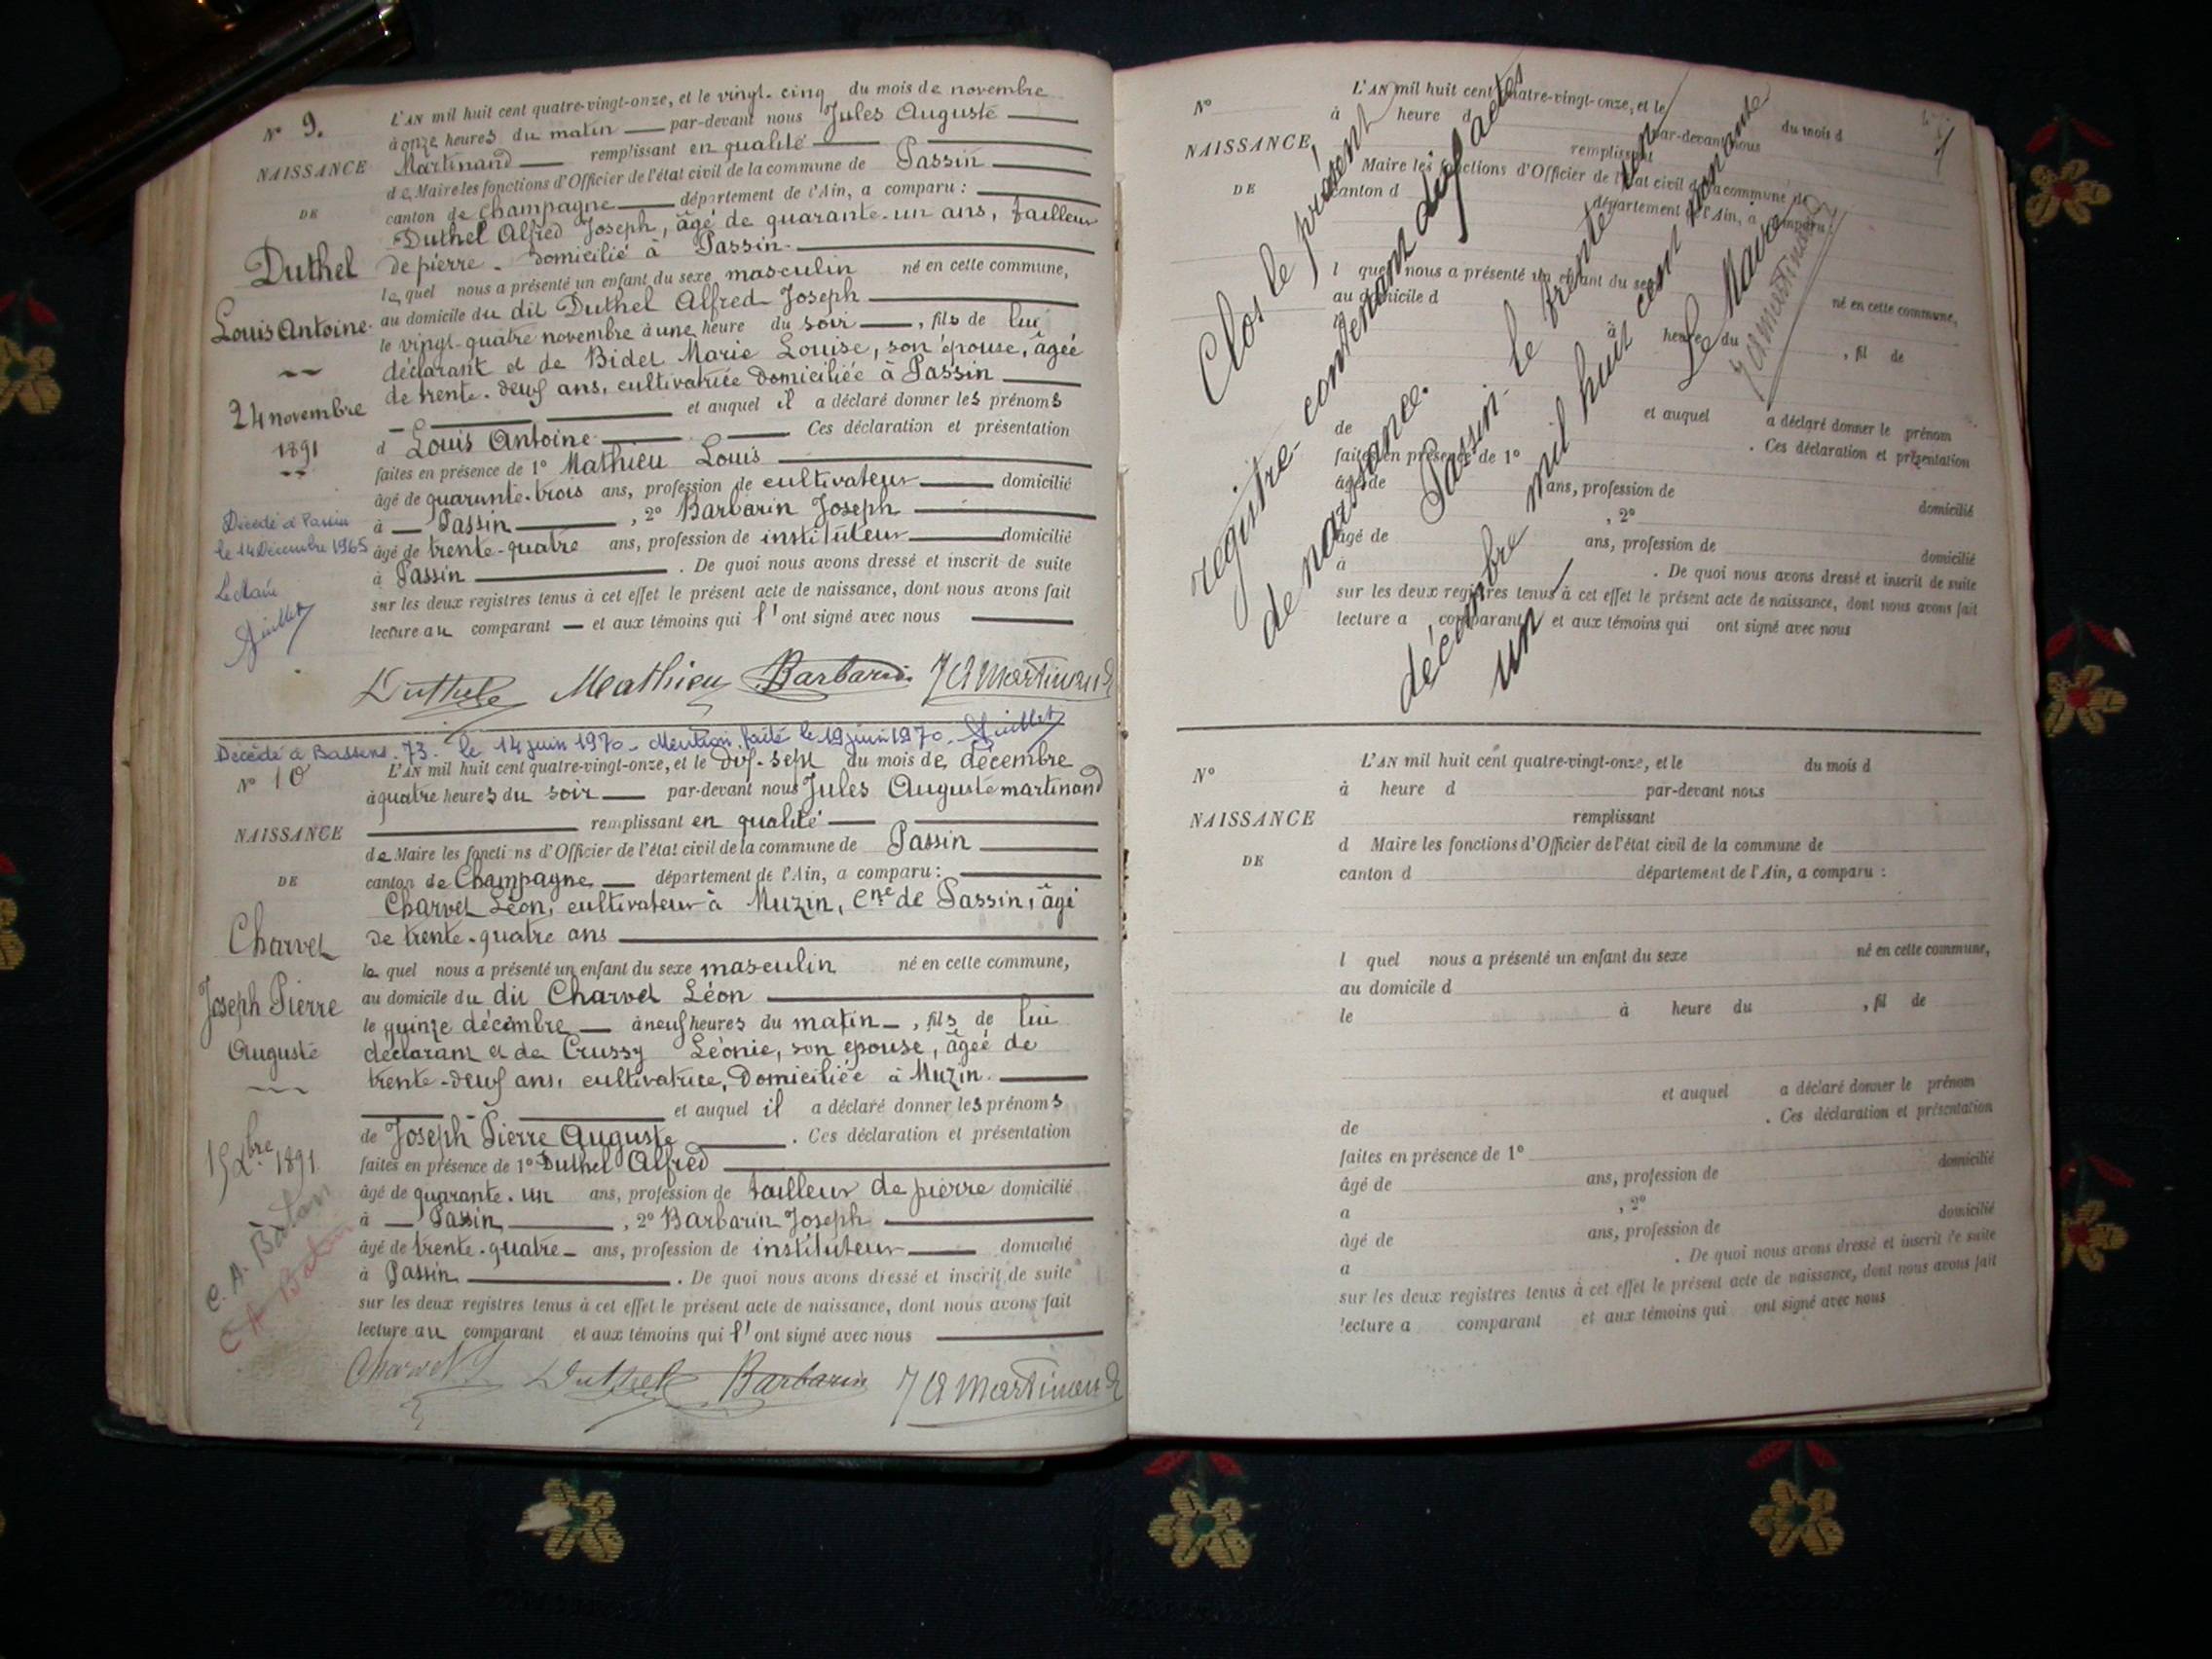 N° 9.
NAISSANCE
DE
Duthel
Louis Antoine
24 novembre
1891
Décédé à Passin
le 14 Décembre 1965
Le Maire
L'AN mil huit cent quatre-vingt-onze, et le vingt-cinq du mois de novembre
à onze heures du matin — par-devant nous Jules Auguste
Martinand — remplissant en qualité
de Maire les fonctions d'Officier de l'état civil de la commune de Passin
canton de Champagne département de l'Ain, a comparu :
Duthel Alfred Joseph, âgé de quarante-un ans, tailleur
de pierre - domicilié à Passin.
lequel nous a présenté un enfant du sexe masculin né en cette commune,
au domicile du dit Duthel Alfred Joseph
le vingt-quatre novembre à une heure du soir —, fils de lui
déclarant et de Bidet Marie Louise, son épouse, âgée
de trente-deux ans, cultivatrice domiciliée à Passin
et auquel il a déclaré donner les prénoms
d Louis Antoine Ces déclaration et présentation
faites en présence de 1° Mathieu Louis
âgé de quarante-trois ans, profession de cultivateur domicilié
à — Passin, 2° Barbarin Joseph
âgé de trente-quatre ans, profession de instituteur domicilié
à Passin . De quoi nous avons dressé et inscrit de suite
sur les deux registres tenus à cet effet le présent acte de naissance, dont nous avons fait
lecture au comparant — et aux témoins qui l'ont signé avec nous
Duthel Mathieu Barbarin JAMartinand
Décédé à Bassens. 73. le 14 juin 1970 - Mention faite le 19 juin 1970.
N° 10
NAISSANCE
DE
Charvet
Joseph Pierre
Auguste
15 Xbre 1891
C. A. Balan
C A Balan
L'AN mil huit cent quatre-vingt-onze, et le dix-sept du mois de décembre
à quatre heures du soir — par-devant nous Jules Auguste martinand
remplissant en qualité
de Maire les fonctions d'Officier de l'état civil de la commune de Passin
canton de Champagne département de l'Ain, a comparu :
Charvet Léon, cultivateur à Muzin, Cne de Passin, âgé
de trente-quatre ans
lequel nous a présenté un enfant du sexe masculin né en cette commune,
au domicile du dit Charvet Léon
le quinze décembre — à neuf heures du matin —, fils de lui
déclarant et de Crussy Léonie, son épouse, âgée de
trente-deux ans, cultivatrice, domiciliée à Muzin.
et auquel il a déclaré donner les prénoms
de Joseph Pierre Auguste . Ces déclaration et présentation
faites en présence de 1° Duthel Alfred
âgé de quarante-un ans, profession de tailleur de pierre domicilié
à — Passin, 2° Barbarin Joseph
âgé de trente-quatre - ans, profession de instituteur domicilié
à Passin . De quoi nous avons dressé et inscrit de suite
sur les deux registres tenus à cet effet le présent acte de naissance, dont nous avons fait
lecture au comparant et aux témoins qui l'ont signé avec nous
Charvet L Duthel Barbarin JAMartinand
N°
NAISSANCE
DE
L'AN mil huit cent quatre-vingt-onze, et le du mois d
à heure d par-devant nous
remplissant
Maire les fonctions d'Officier de l'état civil de la commune de
canton d département de l'Ain, a comparu :
l quel nous a présenté un enfant du sexe né en cette commune,
au domicile d
à heure du , fil de
et auquel a déclaré donner le prénom
de . Ces déclaration et présentation
faites en présence de 1°
âgé de ans, profession de domicilié
, 2°
âgé de ans, profession de domicilié
à . De quoi nous avons dressé et inscrit de suite
sur les deux registres tenus à cet effet le présent acte de naissance, dont nous avons fait
lecture a comparant et aux témoins qui ont signé avec nous
Clos le présent
registre contenant dix actes
de naissance.
Passin - le trente un
décembre mil huit cent nonante
un
Le Maire
JAMartinand
N°
NAISSANCE
DE
L'AN mil huit cent quatre-vingt-onze, et le du mois d
à heure d par-devant nous
remplissant
d Maire les fonctions d'Officier de l'état civil de la commune de
canton d département de l'Ain, a comparu :
l quel nous a présenté un enfant du sexe né en cette commune,
au domicile d
le à heure du , fil de
et auquel a déclaré donner le prénom
de . Ces déclaration et présentation
faites en présence de 1°
âgé de ans, profession de domicilié
a , 2°
âgé de ans, profession de domicilié
a . De quoi nous avons dressé et inscrit de suite
sur les deux registres tenus à cet effet le présent acte de naissance, dont nous avons fait
lecture a comparant et aux témoins qui ont signé avec nous